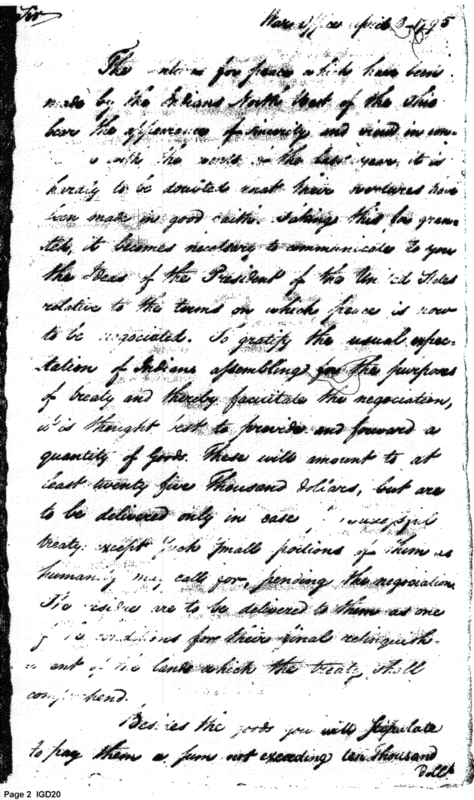 Sir War office April 8 1795
The for peace which have been
made by the Indians North West of the Ohio
bear the appearance of sincerity and view'd in con-
with the events of the last year, it is
hardly to be doubted that their overtures have
been made in good faith. Taking this for gran-
ted, it becomes necessary to communicate to you
the Ideas of the President of the United States
relative to the terms on which peace is now
to be negociated. To gratify the usual expec-
tation of Indians assembling for the purposes
of treaty and thereby facilitate the negociation,
it is thought best to provide and forward a
quantity of Goods. These will amount to at
least twenty five Thousand dollars, but are
to be delivered only in case successful
treaty except such small portions of them as
humanity may call for, pending the negociation
The residue are to be delivered to them as one
of the conditions for their final relinquish-
ment of the lands which the treaty shall
comprehend.
Besides the goods you will stipulate
to pay them a sum not exceeding ten Thousand
Dolls
Page 2 IGD20